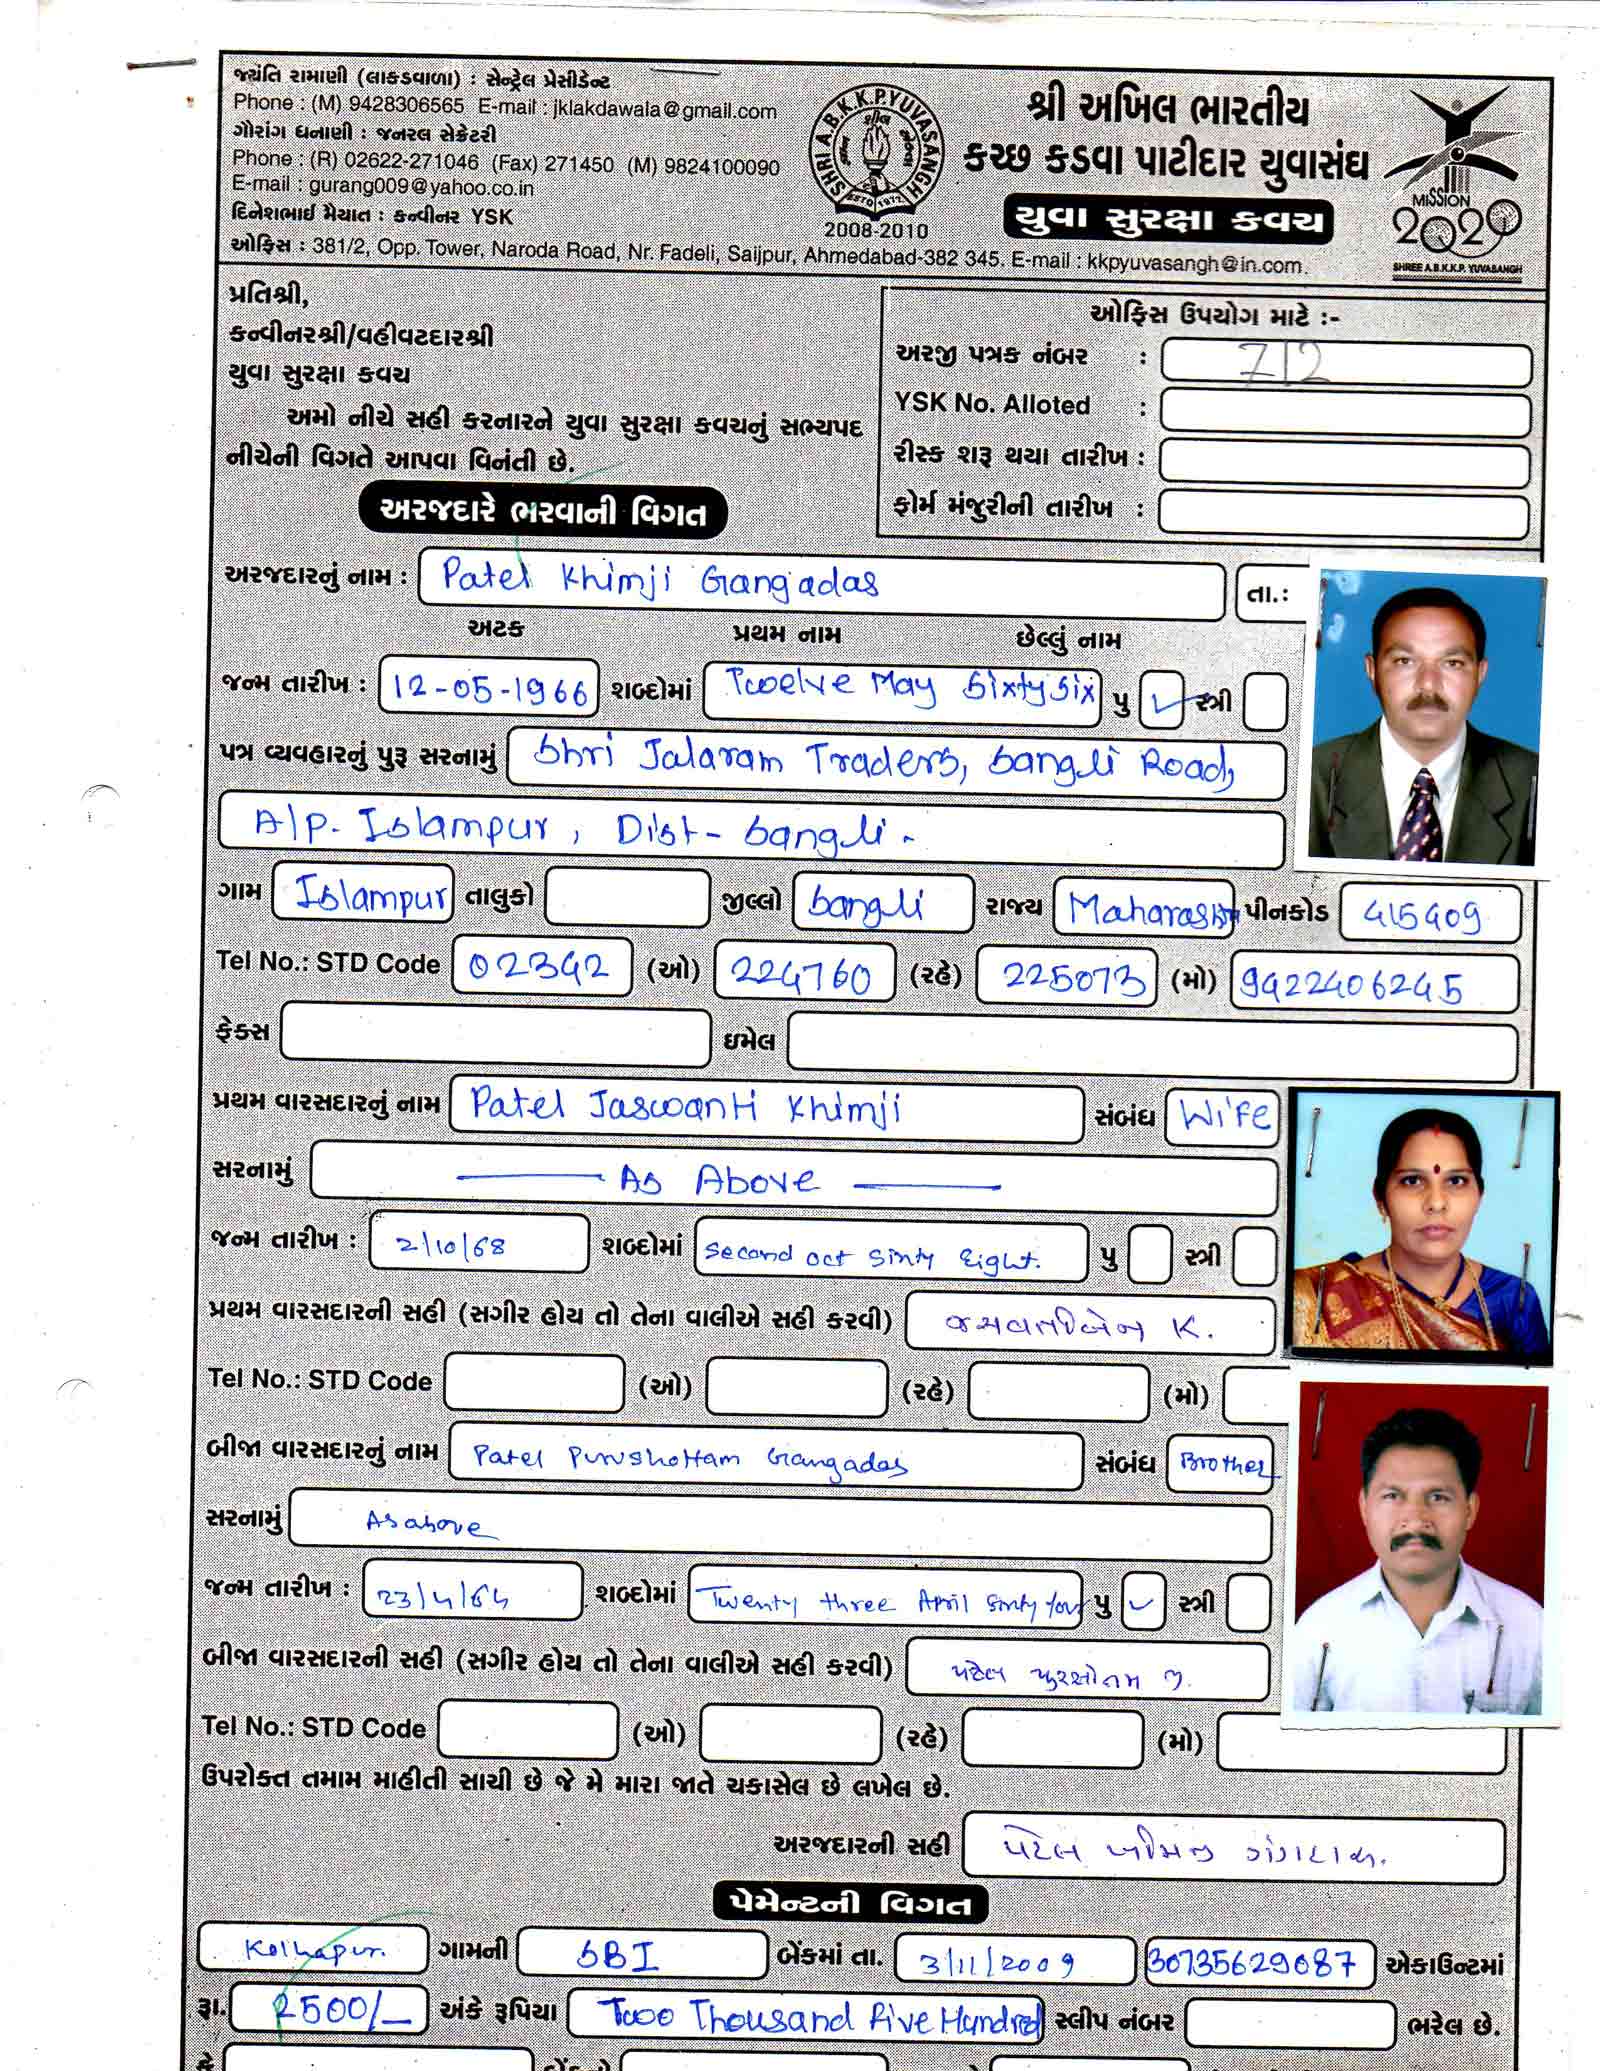 જયંતિ રામાણી (લાકડવાળા) : સેન્ટ્રેલ પ્રેસીડેન્ટ
Phone : (M) 9428306565 E-mail : jklakdawala@gmail.com
ગૌરાંગ ધનાણી : જનરલ સેક્રેટરી
Phone : (R) 02622-271046 (Fax) 271450 (M) 9824100090
E-mail : gurang009@yahoo.co.in
દિનેશભાઈ મૈયાત : કન્વીનર YSK
SHRI A.B.K.K.P. YUVASANGH
ESTD 1977
2008-2010
શ્રી અખિલ ભારતીય
કચ્છ કડવા પાટીદાર યુવાસંઘ
યુવા સુરક્ષા કવચ
MISSION
2020
SHREE A.B.K.K.P. YUVASANGH
ઓફિસ : 381/2, Opp. Tower, Naroda Road, Nr. Fadeli, Saijpur, Ahmedabad-382 345. E-mail : kkpyuvasangh@in.com.
પ્રતિશ્રી,
કન્વીનરશ્રી/વહીવટદારશ્રી
યુવા સુરક્ષા કવચ
અમો નીચે સહી કરનારને યુવા સુરક્ષા કવચનું સભ્યપદ
નીચેની વિગતે આપવા વિનંતી છે.
ઓફિસ ઉપયોગ માટે :-
અરજી પત્રક નંબર : 712
YSK No. Alloted :
રીસ્ક શરૂ થયા તારીખ :
ફોર્મ મંજુરીની તારીખ :
અરજદારે ભરવાની વિગત
અરજદારનું નામ : Patel Khimji Gangadas તા.:
અટક પ્રથમ નામ છેલ્લું નામ
જન્મ તારીખ : 12-05-1966 શબ્દોમાં Twelve May Sixty Six પુ ✓ સ્ત્રી
પત્ર વ્યવહારનું પુરૂ સરનામું Shri Jalaram Traders, Sangli Road,
A/p. Islampur, Dist - Sangli.
ગામ Islampur તાલુકો જીલ્લો Sangli રાજ્ય પીનકોડ 415409
Tel No.: STD Code 02342 (ઓ) 224760 (રહે) 225073 (મો) 9422406245
ફેક્સ ઇમેલ
પ્રથમ વારસદારનું નામ Patel Jaswanti Khimji સંબંધ Wife
સરનામું As Above
જન્મ તારીખ : 2/10/68 શબ્દોમાં Second Oct Sixty Eight. પુ સ્ત્રી
પ્રથમ વારસદારની સહી (સગીર હોય તો તેના વાલીએ સહી કરવી) જસવંતીબેન K.
Tel No.: STD Code (ઓ) (રહે) (મો)
બીજા વારસદારનું નામ Patel Purushottam Gangadas સંબંધ Brother
સરનામું As above
જન્મ તારીખ : 23/4/64 શબ્દોમાં Twenty three April Sixty four પુ ✓ સ્ત્રી
બીજા વારસદારની સહી (સગીર હોય તો તેના વાલીએ સહી કરવી) પટેલ પુરસોતમ જી.
Tel No.: STD Code (ઓ) (રહે) (મો)
ઉપરોક્ત તમામ માહીતી સાચી છે જે મે મારા જાતે ચકાસેલ છે લખેલ છે.
અરજદારની સહી પટેલ ખીમજી ગંગાદાસ.
પેમેન્ટની વિગત
Kolhapur. ગામની SBI બેંકમાં તા. 3/11/2009 30735629087 એકાઉન્ટમાં
રૂા. 2500/- અંકે રૂપિયા Two Thousand Five Hundred સ્લીપ નંબર ભરેલ છે.